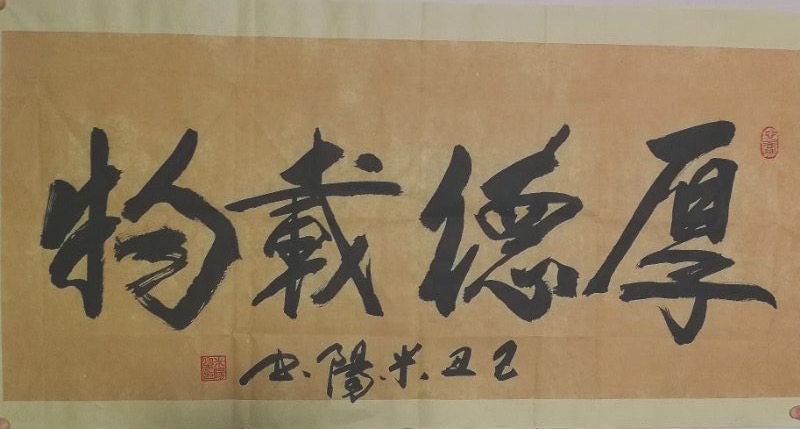 厚德載物
己丑米陽书